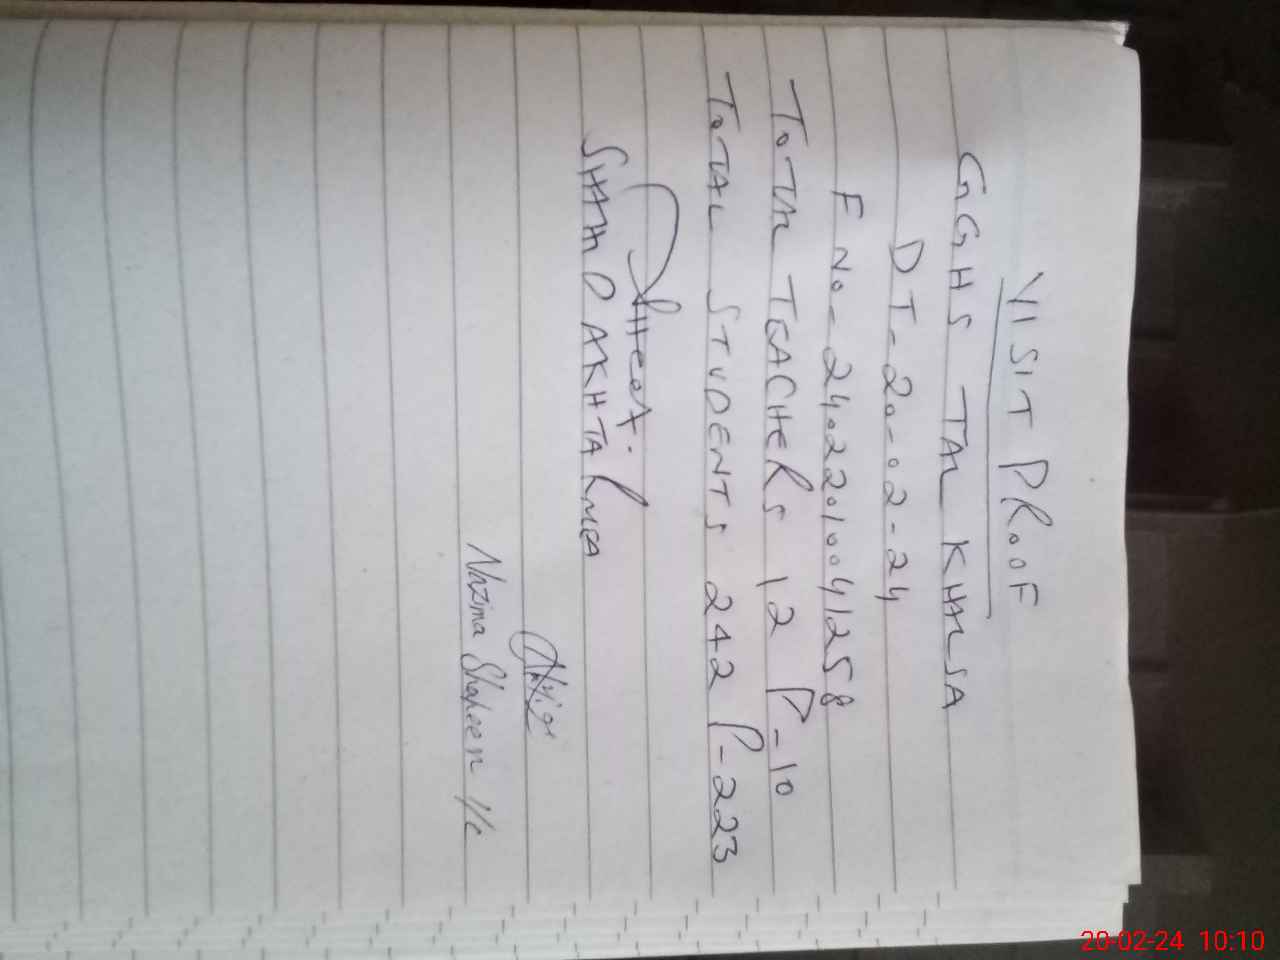 VISIT PROOF
GGHS TAL KHALSA
DT-20-02-24
F No-24022010041258
TOTAL TEACHERS 12 P-10
TOTAL STUDENTS 242 P-223
SHAMD AKHTAR
Nazima Shaheen I/c
20-02-24 10:10